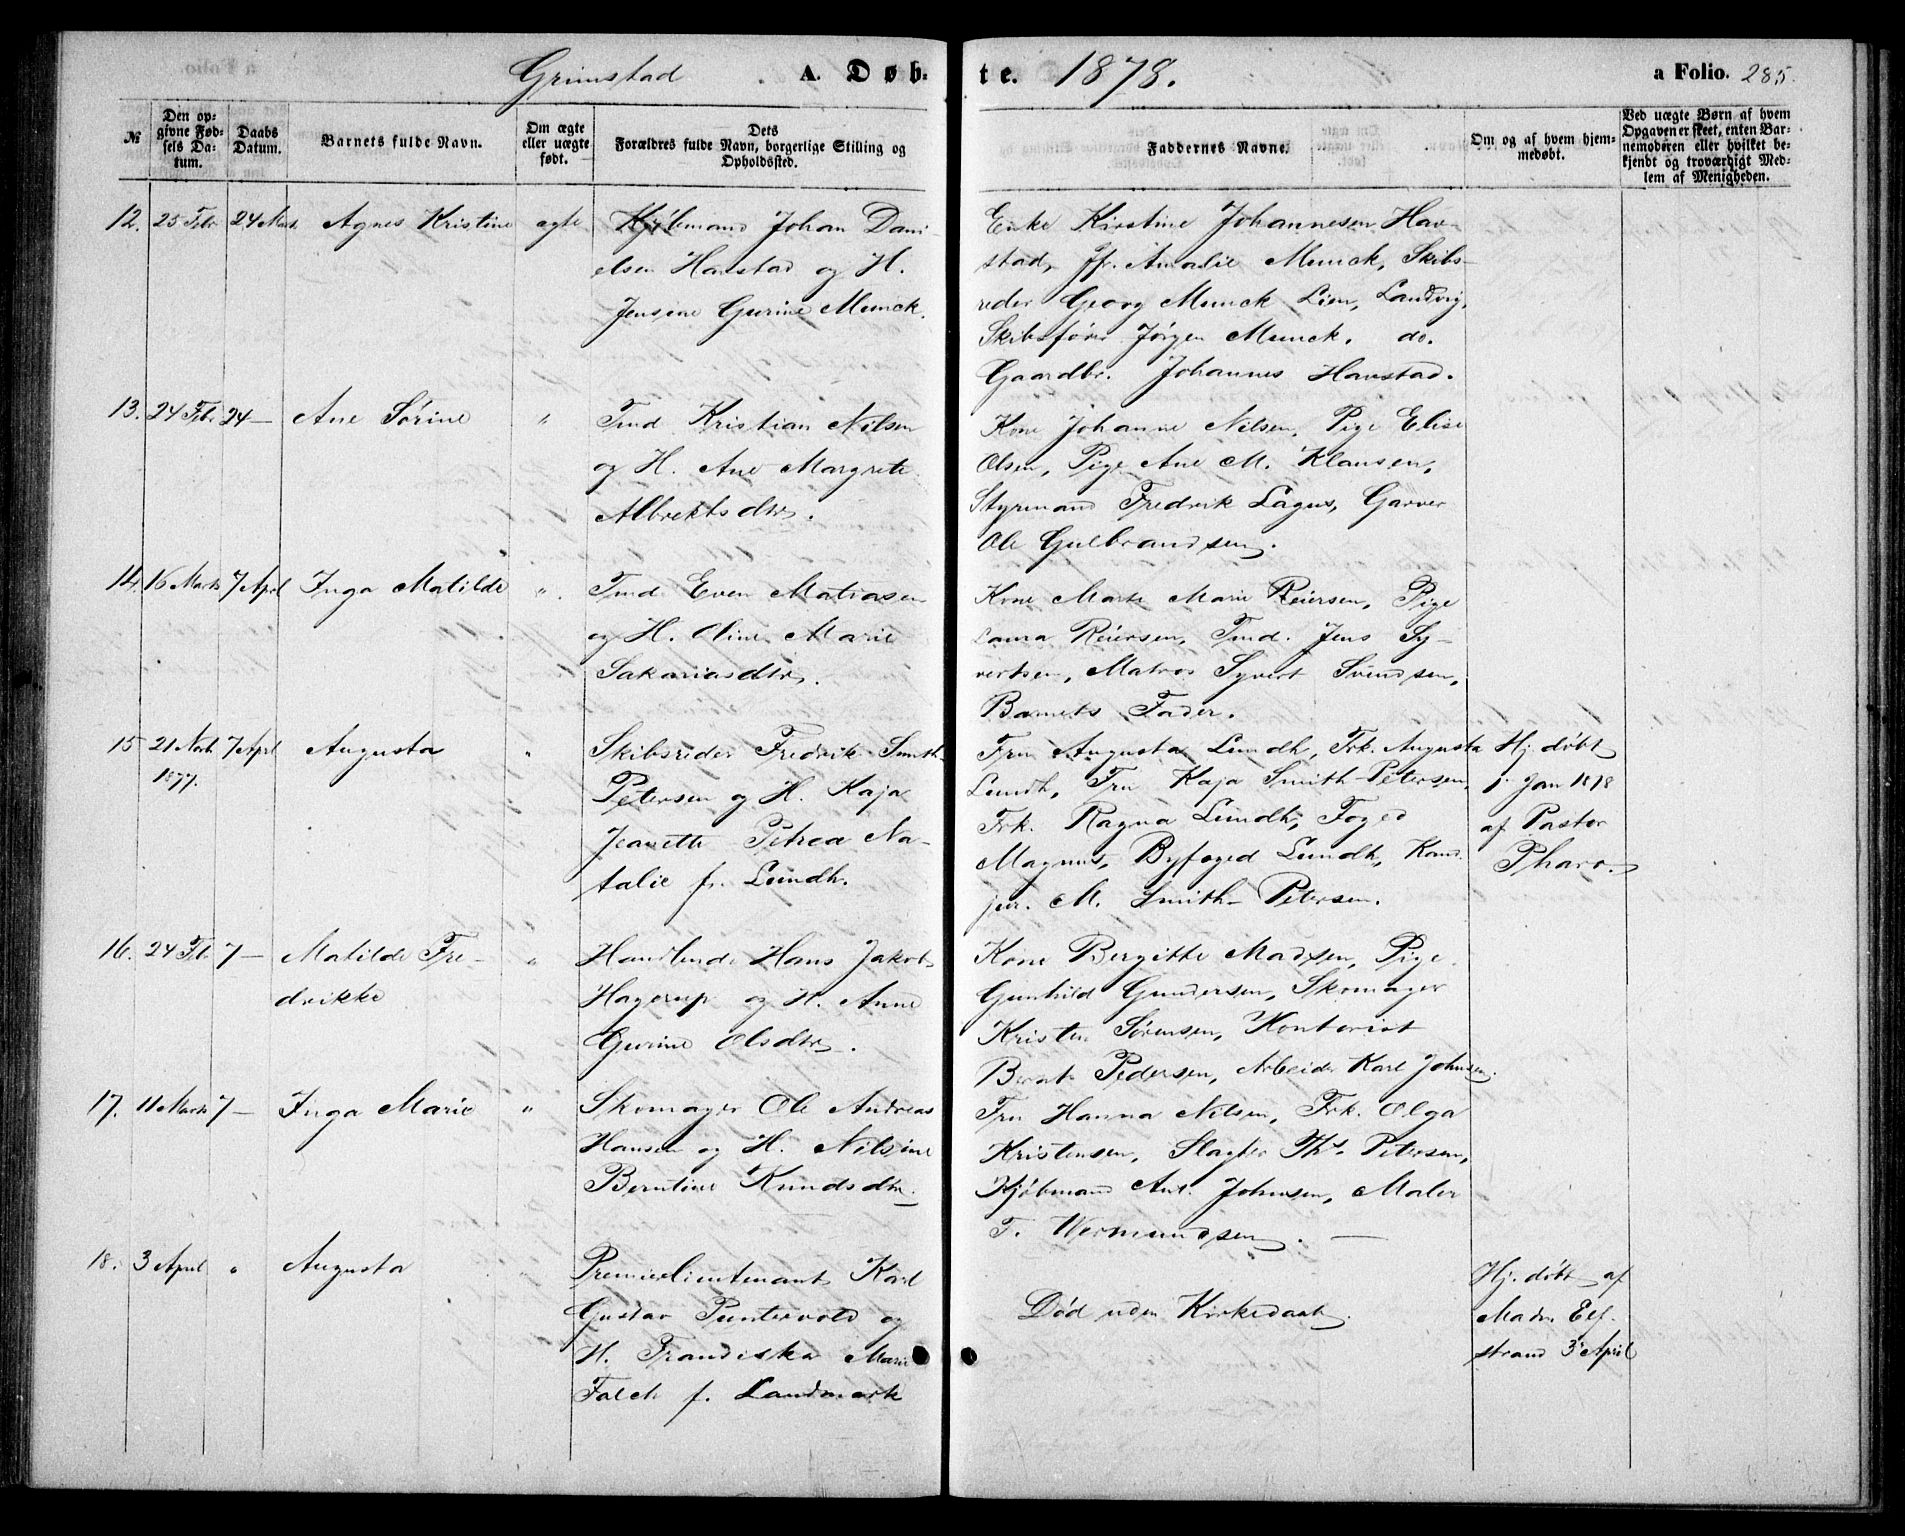 Grimstad A. Døb- te. 1878. a Folio. 285.
№
Den op-
givne Fød-
sels Da-
tum.
Daabs
Datum.
Barnets fulde Navn.
Om ægte
eller uægte
født.
Dets
Forældres fulde Navn, borgerlige Stilling og
Opholdssted.
Faddernes Navne.
Om og af hvem hjem-
medøbt.
Ved uægte Børn af hvem
Opgaven er skeet, enten Bar-
nemoderen eller hvilket be-
kjendt og troværdigt Med-
lem af Menigheden.
12. 25 Febr 24 Marts Agnes Kristine ægte Kjøbmand Johan Dani-
elsen Havstad og H.
Jensine Gurine Munck.
Enke Kirstine Johannesen Hav-
stad, Jfr. Amalie Munck, Skibs-
reder Georg Munck Lien, Landvig,
Skibsfører Jørgen Munck, do.
Gaardbr. Johannes Havstad.
13. 24 Fbr. 24 — Ane Sørine " Tmd Kristian Nilsen
og H. Ane Margrete
Albrektsdtr.
Kone Johanne Nilsen, Pige Elise
Olsen, Pige Ane M. Klausen,
Styrmand Fredrik Lagus, Garver
Ole Gulbrandsen.
14. 16 Marts 7 April Inga Matilde " Tmd. Even Matiasen
og H. Oline Marie
Sakariasdtr.
Kone Marte Marie Reiersen, Pige
Laura Reiersen, Tmd. Jens Sy-
vertsen, Matros Syvert Svendsen,
Barnets Fader.
15 21 Novb. 7 April Augusta " Skibsreder Fredrik Smith-
1877.
Petersen og H. Kaja
Jeanette Petrea Na-
talie f. Lundh.
Fru Augusta Lundh, Frk. Augusta
Lundh, Fru Kaja Smith-Petersen,
Frk. Ragna Lundh, Foged
Magnus, Byfoged Lundh, Kand.
jur. M. Smith-Petersen.
Hj. døbt
1. Jan 1878
af Pastor
Pharo.
16. 24 Fb. 7 — Matilde Fre-
drikke " Handlende Hans Jakob
Hagerup og H. Anne
Gurine Olsdtr.
Kone Bergitte Madsen, Pige
Gunhild Gundersen, Skomager
Kristen Sørensen, Kontorist
Bernt Pedersen, Arbeider Karl Johnsen.
17. 11 Marts 7 — Inga Marie " Skomager Ole Andreas
Hansen og H. Nilsine
Berntine Knudsdtr.
Fru Hanna Nilsen, Frk. Olga
Kristensen, Slagter Ths. Petersen,
Kjøbmand Ant. Johnsen, Maler
T. Wermundsen. —
18. 3 April " Augusta " Premierlieutenant Karl
Gustav Puntervold og
H. Frandiska Marie
Falch f. Landmark
Død uden Kirkedaab.
Hj. døbt af
Madm Elf-
strand 3 April